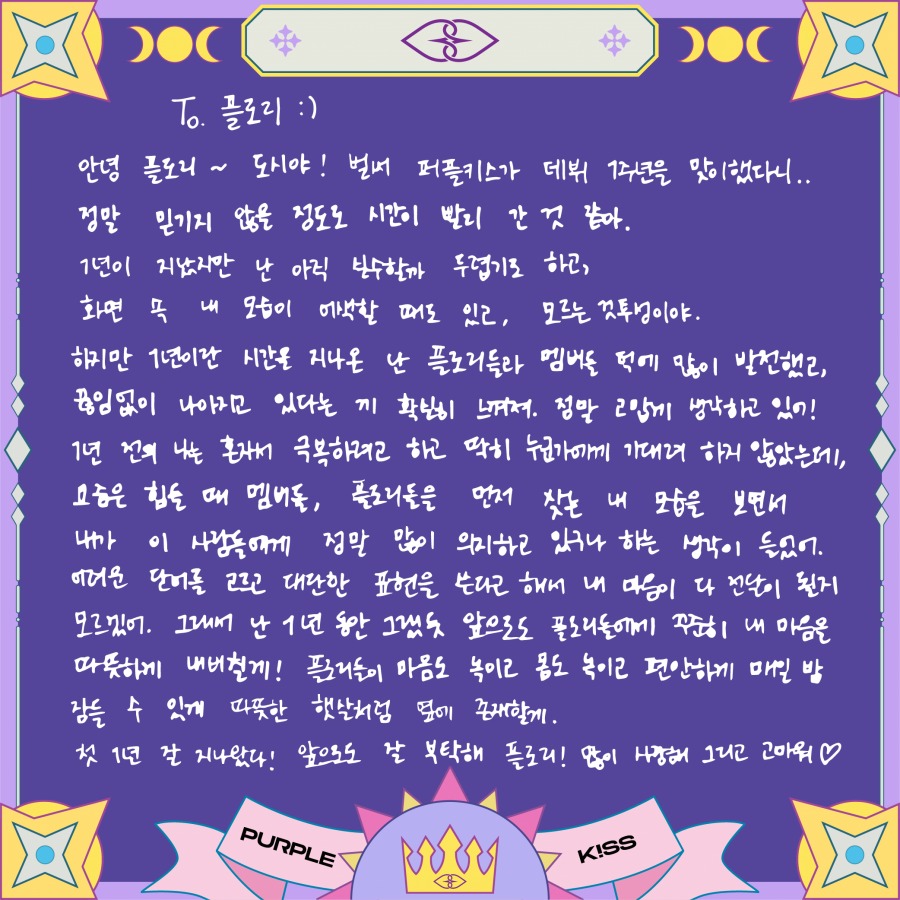 To. 플로리 :)
안녕 플로리 ~ 도시야! 벌써 퍼플키스가 데뷔 1주년을 맞이했다니..
정말 믿기지 않을 정도로 시간이 빨리 간 것 같아.
1년이 지났지만 난 아직 실수할까 두렵기도 하고,
화면 속 내 모습이 어색할 때도 있고, 모르는 것투성이야.
하지만 1년이란 시간을 지나온 난 플로리들과 멤버들 덕에 많이 발전했고,
끊임없이 나아지고 있다는 게 확실히 느껴져. 정말 고맙게 생각하고 있어!
1년 전의 나는 혼자서 극복하려고 하고 딱히 누군가에게 기대려 하지 않았는데,
요즘은 힘들 때 멤버들, 플로리들을 먼저 찾는 내 모습을 보면서
내가 이 사람들에게 정말 많이 의지하고 있구나 하는 생각이 들었어.
어려운 단어를 고르고 대단한 표현을 쓴다고 해서 내 마음이 다 전달이 될지
모르겠어. 그래서 난 1년 동안 그랬듯 앞으로도 플로리들에게 꾸준히 내 마음을
따뜻하게 내비칠게! 플로리들이 마음도 녹이고 몸도 녹이고 편안하게 매일 밤
잠들 수 있게 따뜻한 햇살처럼 옆에 존재할게.
첫 1년 잘 지나왔다! 앞으로도 잘 부탁해 플로리! 많이 사랑해 그리고 고마워♡
PURPLE K!SS